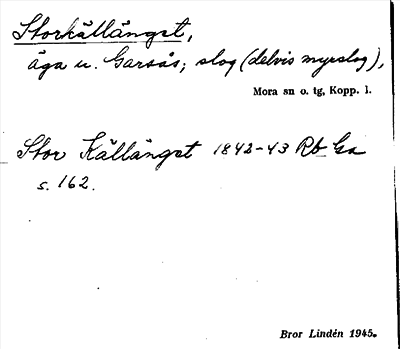 Storkällänget,
äga u. Garsås; slog (delvis myrslog),
Mora sn o. tg, Kopp. l.
Stor Källänget 1842-43 Rb Ga
s. 162.
Bror Lindén 1945.